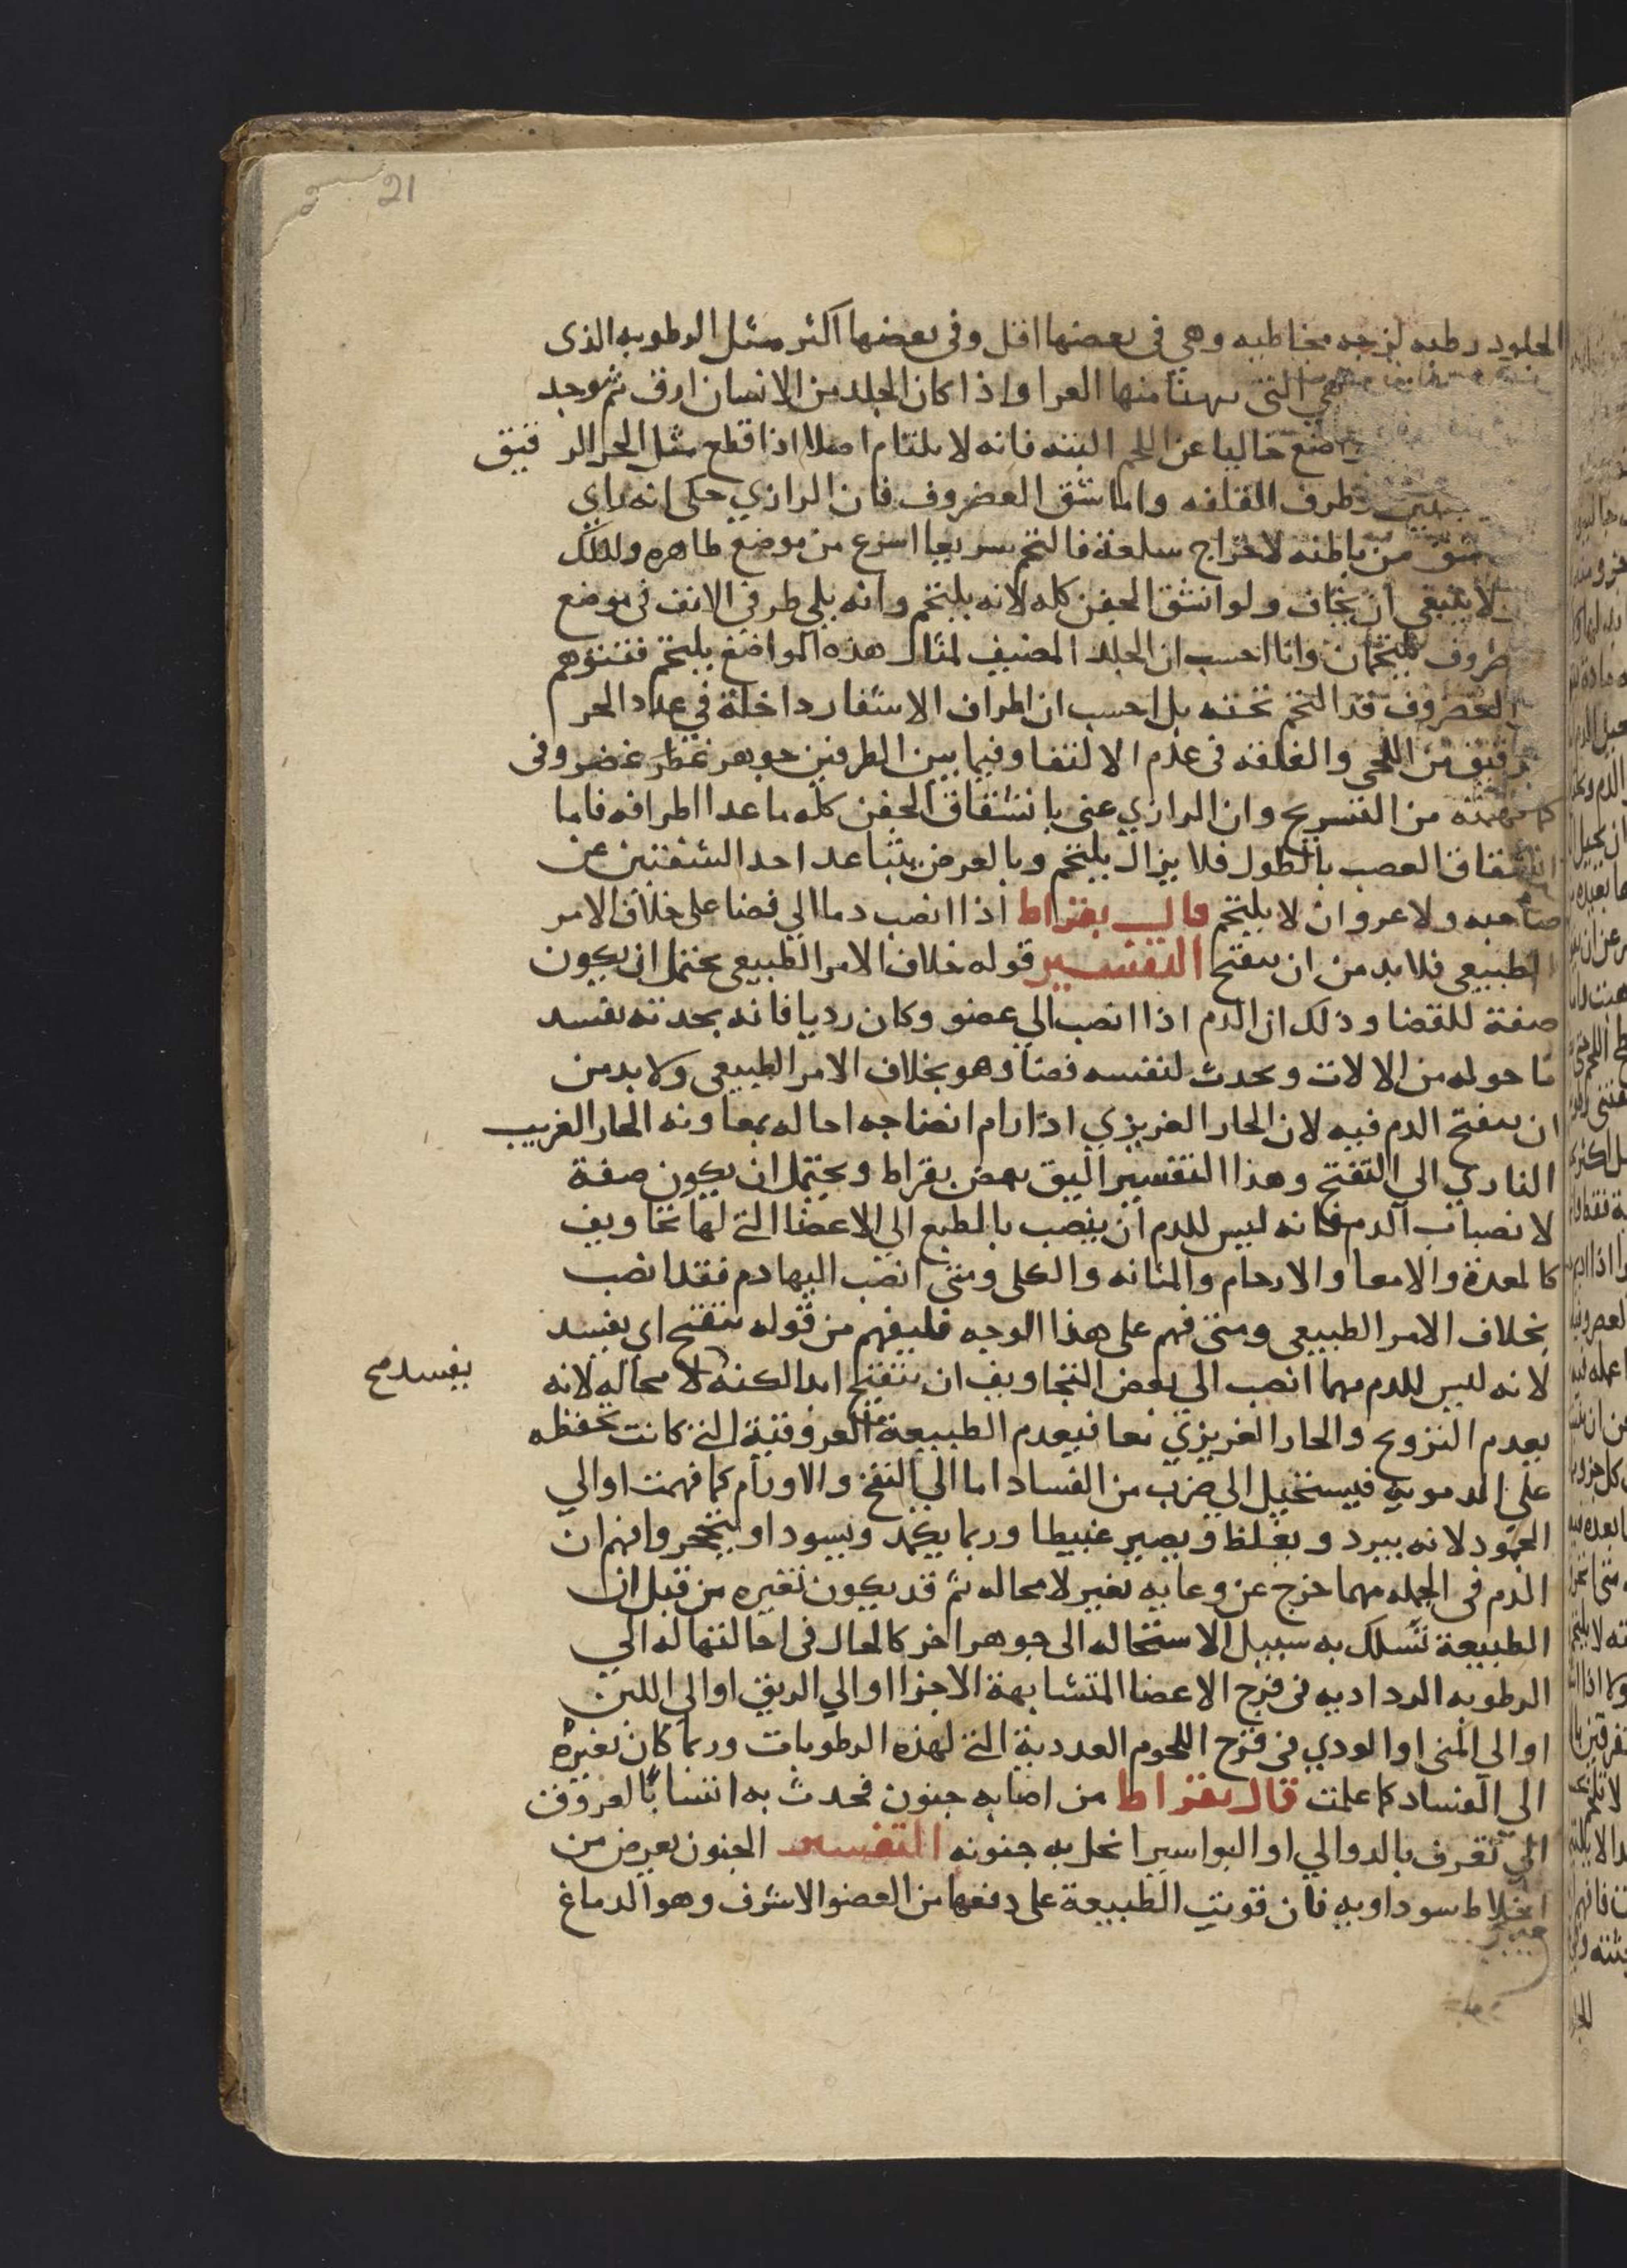 21
الجلود رطبه لزجه مخاطيه وهي في بعضها اقل وفي بعضها اكثر مثل الرطوبه الذى
هي التى يهيا منها الغرا واذا كان الجلد من الانسان ارق ثم وجد
خاليا عن اللحم البته فانه لا يلتام اصلا اذا قطع مثل الجز الرقيق
وطرف القلفه واما شق الغضروف فان الرازي حكى انه راي
شق من باطنه لاخراج سلعة فالتحم سريعا اسرع من موضع ظاهره ولذلك
لا ينبغي ان يخاف ولو انشق الجفن كله لانه يلتحم وانه يلي طرفي الانف في موضع
يلتحمان وانا احسب ان الجلد المضيف لمثال هذه المواضع يلتحم فنتوهم
الغضروف قد التحم تحته بل احسب ان اطراف الاشفار داخلة في عداد الجز
رقيق من اللحى والقلفه في عدم الالتقا وفيما بين الطرفين جوهر غضروفى
كما فهمته من التشريح وان الرازي عنى بانشقاق الجفن كله ما عدا اطرافه فاما
انشقاق العصب بالطول فلا يزال يلتحم وبالعرض يتباعد احد الشقين عن
صاحبه ولا عرو ان لا يلتحم قال بقراط اذا انصب دما الي فضا على خلاف الامر
الطبيعى فلا بد من ان يتقيح التفسير قوله خلاف الامر الطبيعى يحتمل ان يكون
صفة للفضا وذلك ان الدم اذا انصب الي عضو وكان رديا فانه بحدته يفسد
ما حوله من الالات ويحدث لنفسه فضا وهو بخلاف الامر الطبيعى ولا بد من
ان يتقيح الدم فيه لان الحار الغريزي اذا رام انضاجه احاله بمعاونه الحار الغريب
الناري الي التقيح وهذا التفسير اليق بغرض بقراط ويحتمل ان يكون صفة
لانصباب الدم فانه ليس للدم ان ينصب بالطبع الي الاعضا التى لها تجاويف
كالمعدة والامعا والارحام والمثانه والكلى ومتى انصب اليها دم فقد انصب
بخلاف الامر الطبيعى ومتى فهم على هذا الوجه فليفهم من قوله يتقيح اي يفسد
لانه ليس للدم مهما انصب الى بعض التجاويف ان يتقيح ابدا لكنه لا محاله لانه
يفسد صح
يعدم التزويح والحار الغريزي معا فيعدم الطبيعة العروقية التى كانت تحفظه
على الدمويه فيستحيل الي ضرب من الفساد اما الي التقيح والاورام كما فهمت او الي
الجمود لانه يبرد ويغلظ ويصير غبيطا وربما يكمد ويسود او يتحجر وافهم ان
الدم في الجمله مهما خرج عن وعايه تغير لا محاله ثم قد يكون تغيره من قبل ان
الطبيعة تسلك به سبيل الاستحاله الى جوهر اخر كالحال في احالتها له الي
الرطوبه الرداديه في فرج الاعضا المتشابهة الاجزا او الي الريق او الي اللبن
او الي المنى او الودي في فرج اللحوم الغددية التى لهذه الرطوبات وربما كان تغيره
الى الفساد كما علمت قال بقراط من اصابه جنون فحدث به اتساع العروق
التى تعرف بالدوالي او البواسير انحل به جنونه التفسير الجنون يعرض من
اخلاط سوداويه فان قويت الطبيعة على دفعها من العضو الاشرف وهو الدماغ